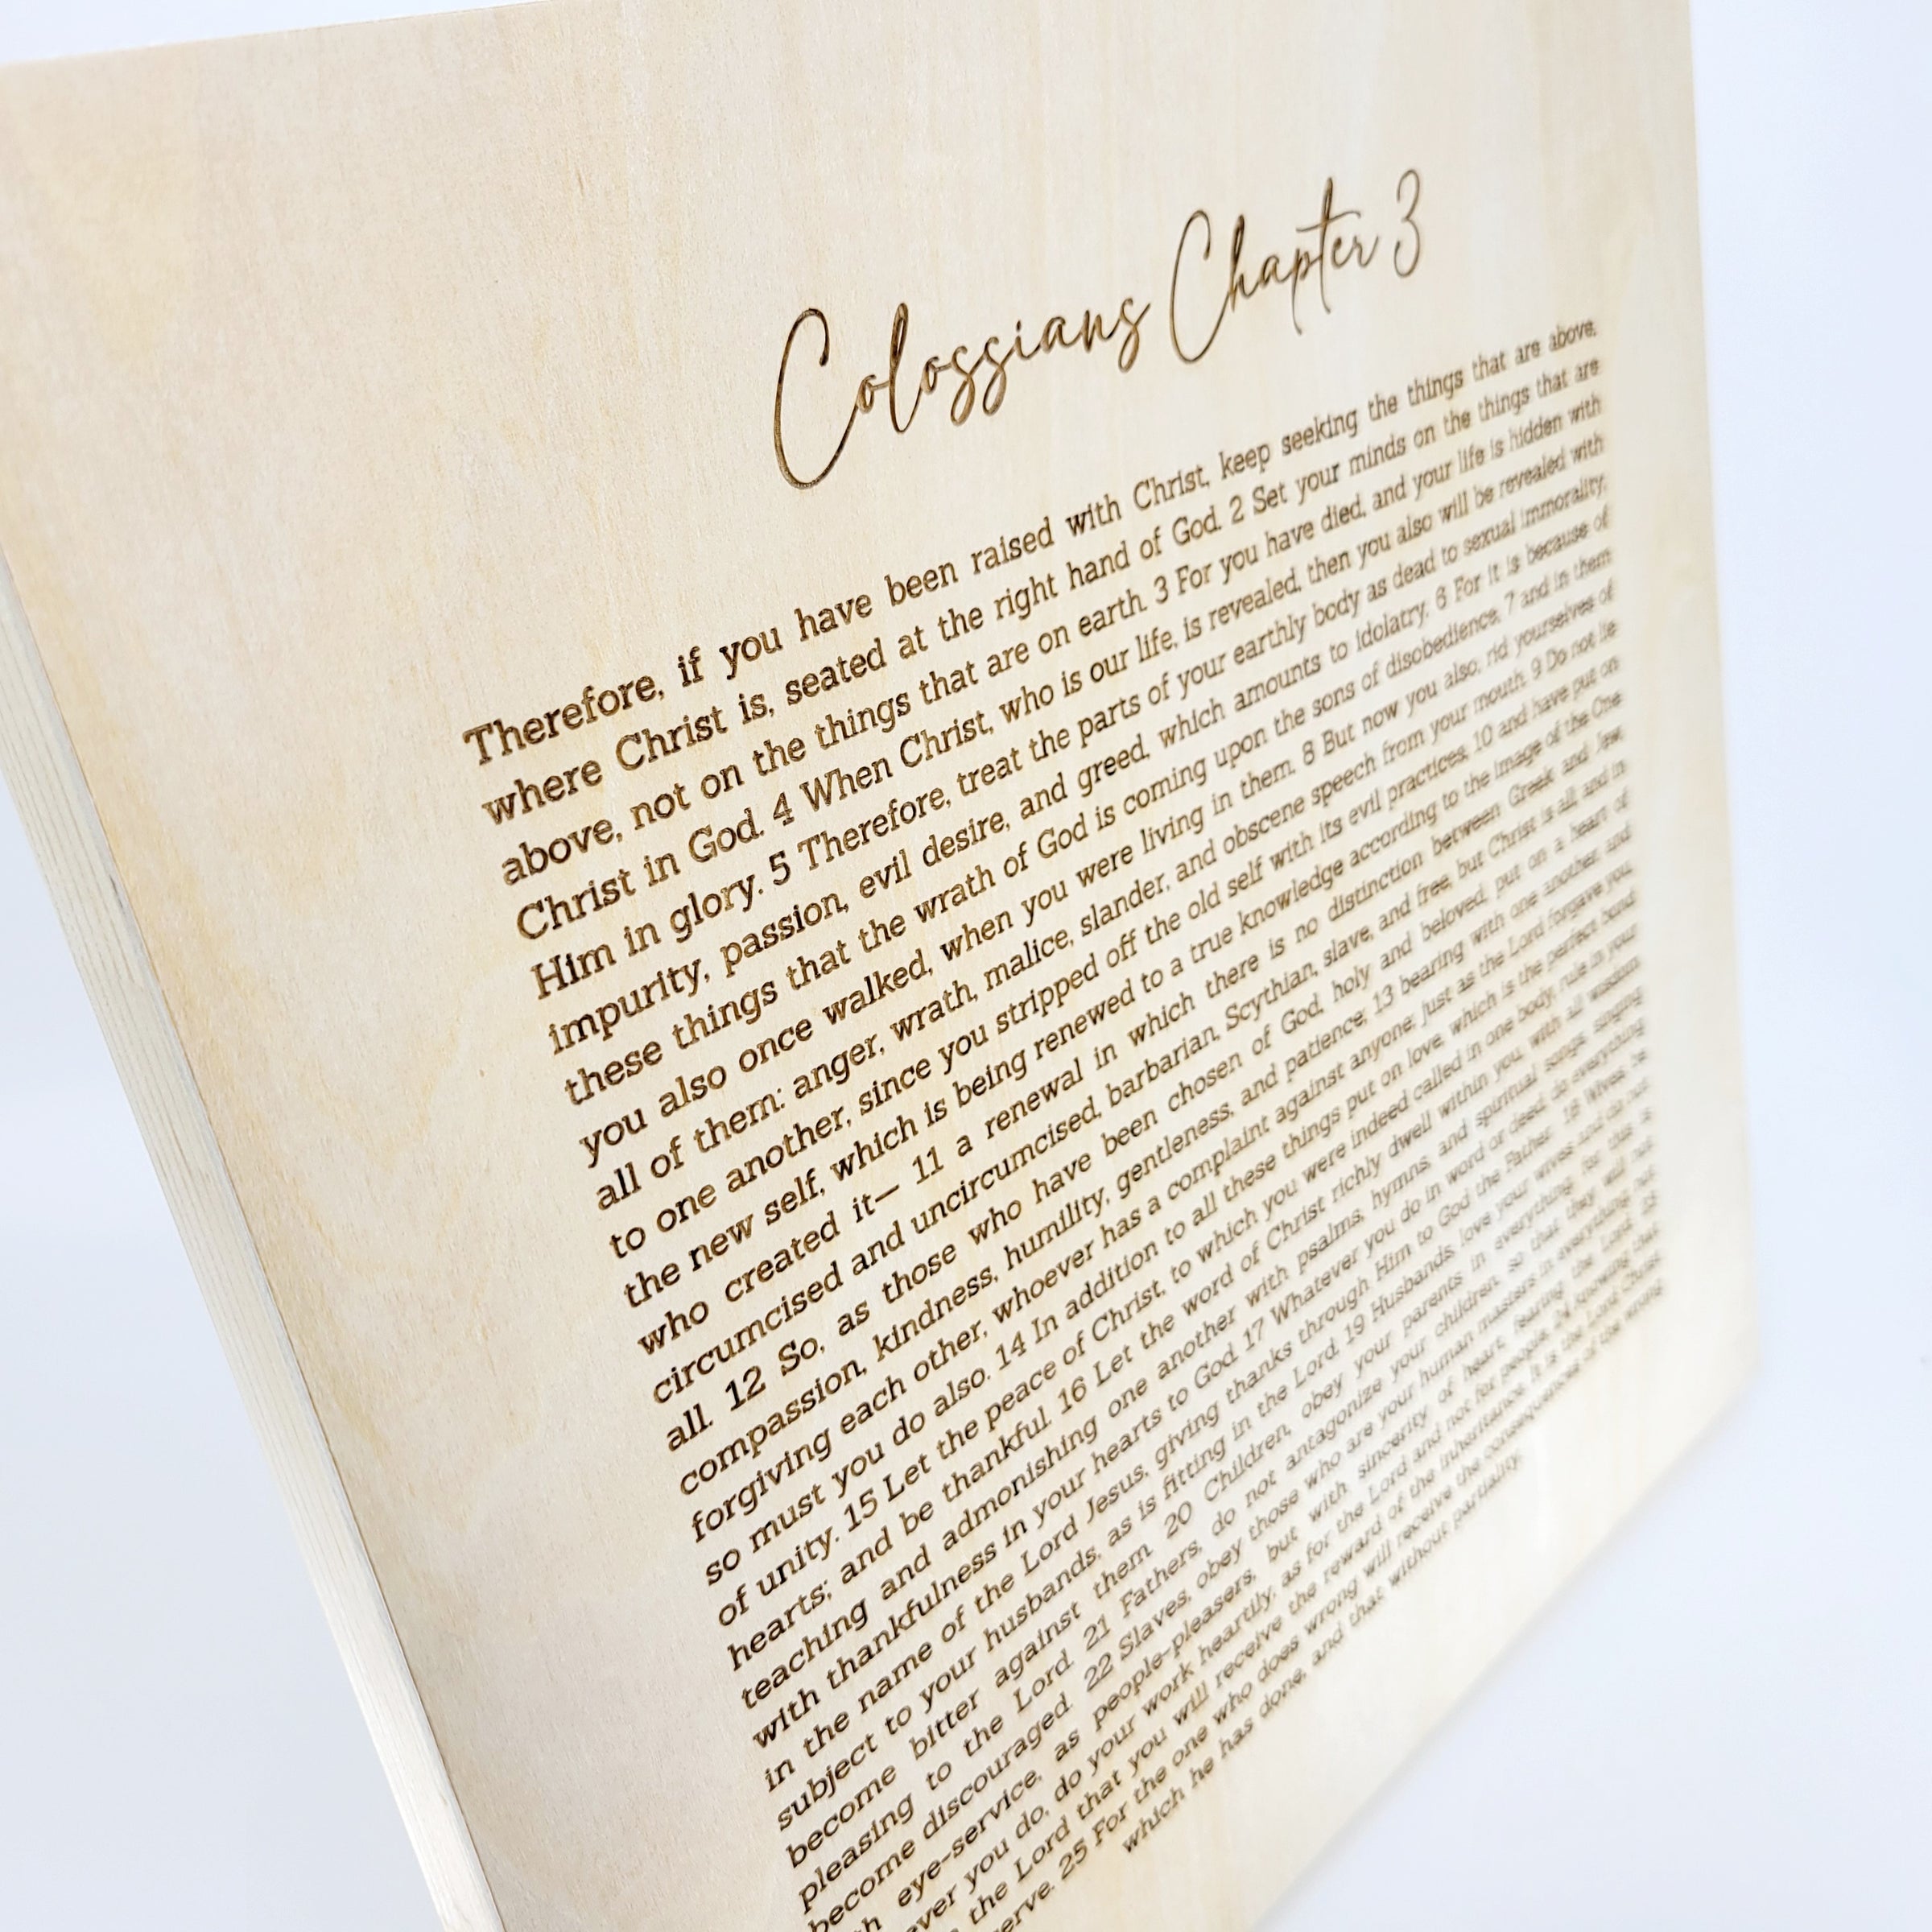 Colossians Chapter 3
Therefore, if you have been raised with Christ, keep seeking the things that are above,
where Christ is, seated at the right hand of God. 2 Set your minds on the things that are
above, not on the things that are on earth. 3 For you have died, and your life is hidden with
Christ in God. 4 When Christ, who is our life, is revealed, then you also will be revealed with
Him in glory. 5 Therefore, treat the parts of your earthly body as dead to sexual immorality,
impurity, passion, evil desire, and greed, which amounts to idolatry. 6 For it is because of
these things that the wrath of God is coming upon the sons of disobedience, 7 and in them
you also once walked, when you were living in them. 8 But now you also, rid yourselves of
all of them: anger, wrath, malice, slander, and obscene speech from your mouth. 9 Do not lie
to one another, since you stripped off the old self with its evil practices, 10 and have put on
the new self, which is being renewed to a true knowledge according to the image of the One
who created it— 11 a renewal in which there is no distinction between Greek and Jew,
circumcised and uncircumcised, barbarian, Scythian, slave, and free, but Christ is all, and in
all. 12 So, as those who have been chosen of God, holy and beloved, put on a heart of
compassion, kindness, humility, gentleness, and patience; 13 bearing with one another, and
forgiving each other, whoever has a complaint against anyone; just as the Lord forgave you,
so must you do also. 14 In addition to all these things put on love, which is the perfect bond
of unity. 15 Let the peace of Christ, to which you were indeed called in one body, rule in your
hearts; and be thankful. 16 Let the word of Christ richly dwell within you, with all wisdom
teaching and admonishing one another with psalms, hymns, and spiritual songs, singing
with thankfulness in your hearts to God. 17 Whatever you do in word or deed, do everything
in the name of the Lord Jesus, giving thanks through Him to God the Father. 18 Wives, be
subject to your husbands, as is fitting in the Lord. 19 Husbands, love your wives and do not
become bitter against them. 20 Children, obey your parents in everything, for this is
pleasing to the Lord. 21 Fathers, do not antagonize your children, so that they will not
become discouraged. 22 Slaves, obey those who are your human masters in everything, not
eye-service, as people-pleasers, but with sincerity of heart, fearing the Lord. 23
you do, do your work heartily, as for the Lord and not for people, 24 knowing that
the Lord that you will receive the reward of the inheritance. It is the Lord Christ
25 For the one who does wrong will receive the consequences of the wrong
which he has done, and that without partiality.